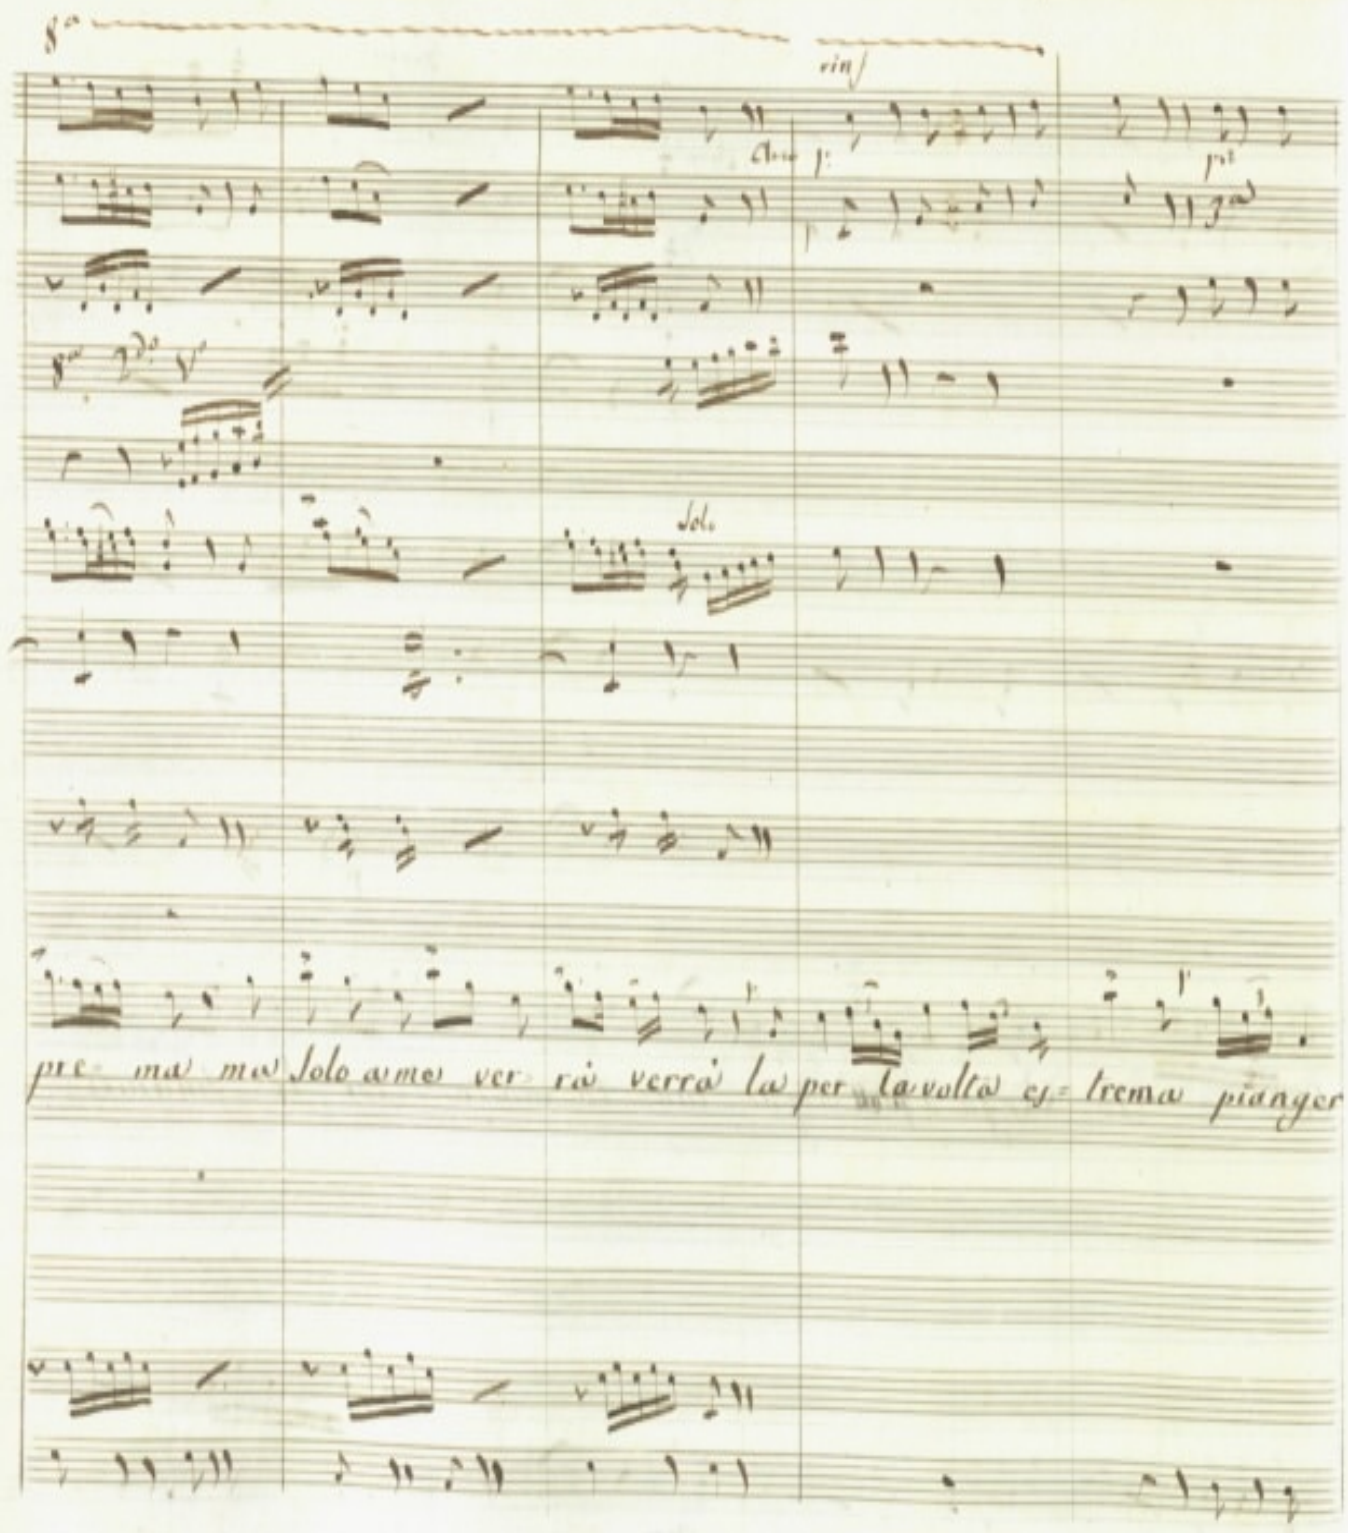 8a
rinf
p:
8a 2do V
Solo
pre ma ma Solo a me ver rà verrà la per la volta es= trema pianger